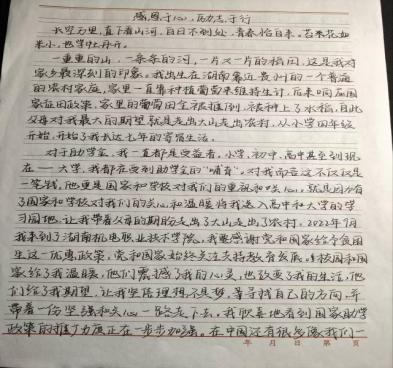 感恩于心，励志于行
长空万里，直下看山河，白日不到处，青春恰自来。苔花如
米小，也学牡丹开。
一重重的山，一条条的河，一片又一片的稻田，这是我对
家乡最深刻的印象。我出生在湖南靠近贵州的一个普通
的农村家庭，家里一直靠种植葡萄来维持生计，后来响应国
家征田政策，家里的葡萄园全被推倒，被种上了水稻，因此
父母对我最大的期望就是走出大山走出农村，从小学四年级
开始，开始了我长达七年的寄宿生活。
对于助学金，我一直都是受益者。小学，初中，高中甚至到现
在——大学，我都在受到助学金的“哺育”。对我而言这不仅仅是
一笔钱，他更是国家和学校对我们的重视和关心。就是因为有
了国家和学校对我们的关心和温暖将我送入高中和大学的学
习园地，让我带着父母的期盼走出了大山走出了农村。2022年9月
我来到了湖南机电职业技术学院，我要感谢党和国家给予贫困
生这一优惠政策，党和国家始终关注支持教育发展。校园和国
家给了我温暖，他们震撼了我的心灵，也改变了我的生活，他
们给了我期望，让我坚信理想不是梦，等寻找自己的方向，并
带着一份坚强和关心一路走下去。我欣喜地看到国家助学
政策的推广力度正在一步步加强。在中国还有很多像我们一
年 月 日 第 页